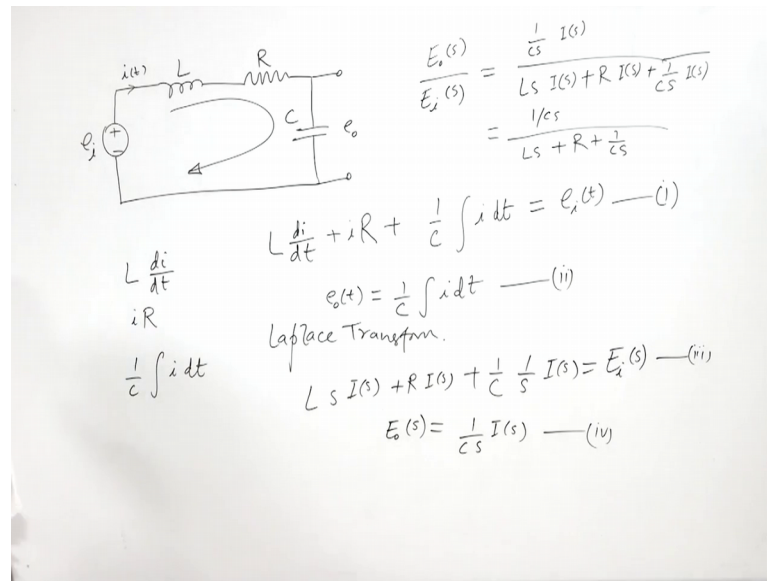 i(t) L R
e_i + - C e_o
E_o(s)/E_i(s) = (1/cs I(s))/(Ls I(s) + R I(s) + 1/cs I(s))
= (1/cs)/(Ls + R + 1/cs)
L di/dt + iR + 1/C ∫ i dt = e_i(t) —(i)
L di/dt
e_o(t) = 1/C ∫ i dt —(ii)
iR
Laplace Transfom.
1/C ∫ i dt
L s I(s) + R I(s) + 1/C 1/s I(s) = E_i(s) —(iii)
E_o(s) = 1/cs I(s) —(iv)